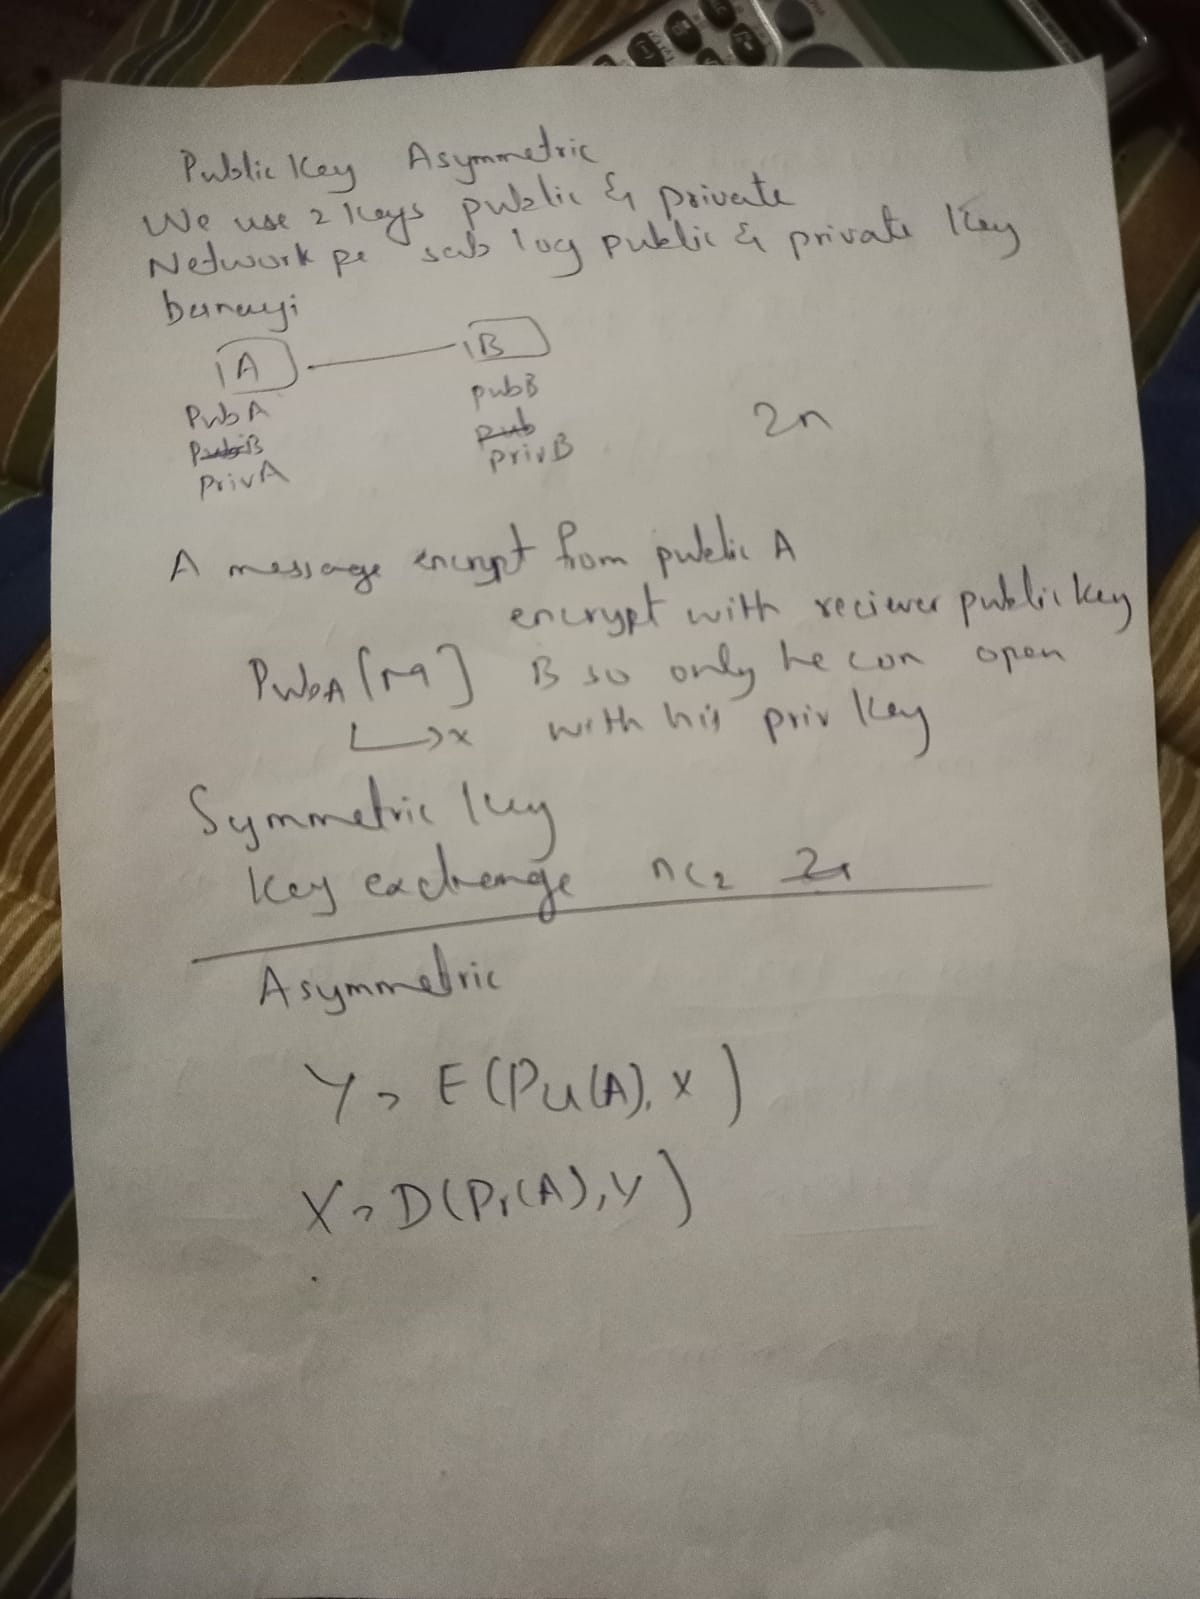 Public Key Asymmetric
We use 2 keys public & private
Network pe sab log public & private key
banayi
A B
PubA pubB
PubB pub
PrivA privB
2n
A message encrypt from public A
encrypt with reciever public key
PubA [M] B so only he can open
↳ x with his priv key
Symmetric key
key exchange nC2
Asymmetric
Y = E(Pu(A), X)
X = D(Pr(A), Y)